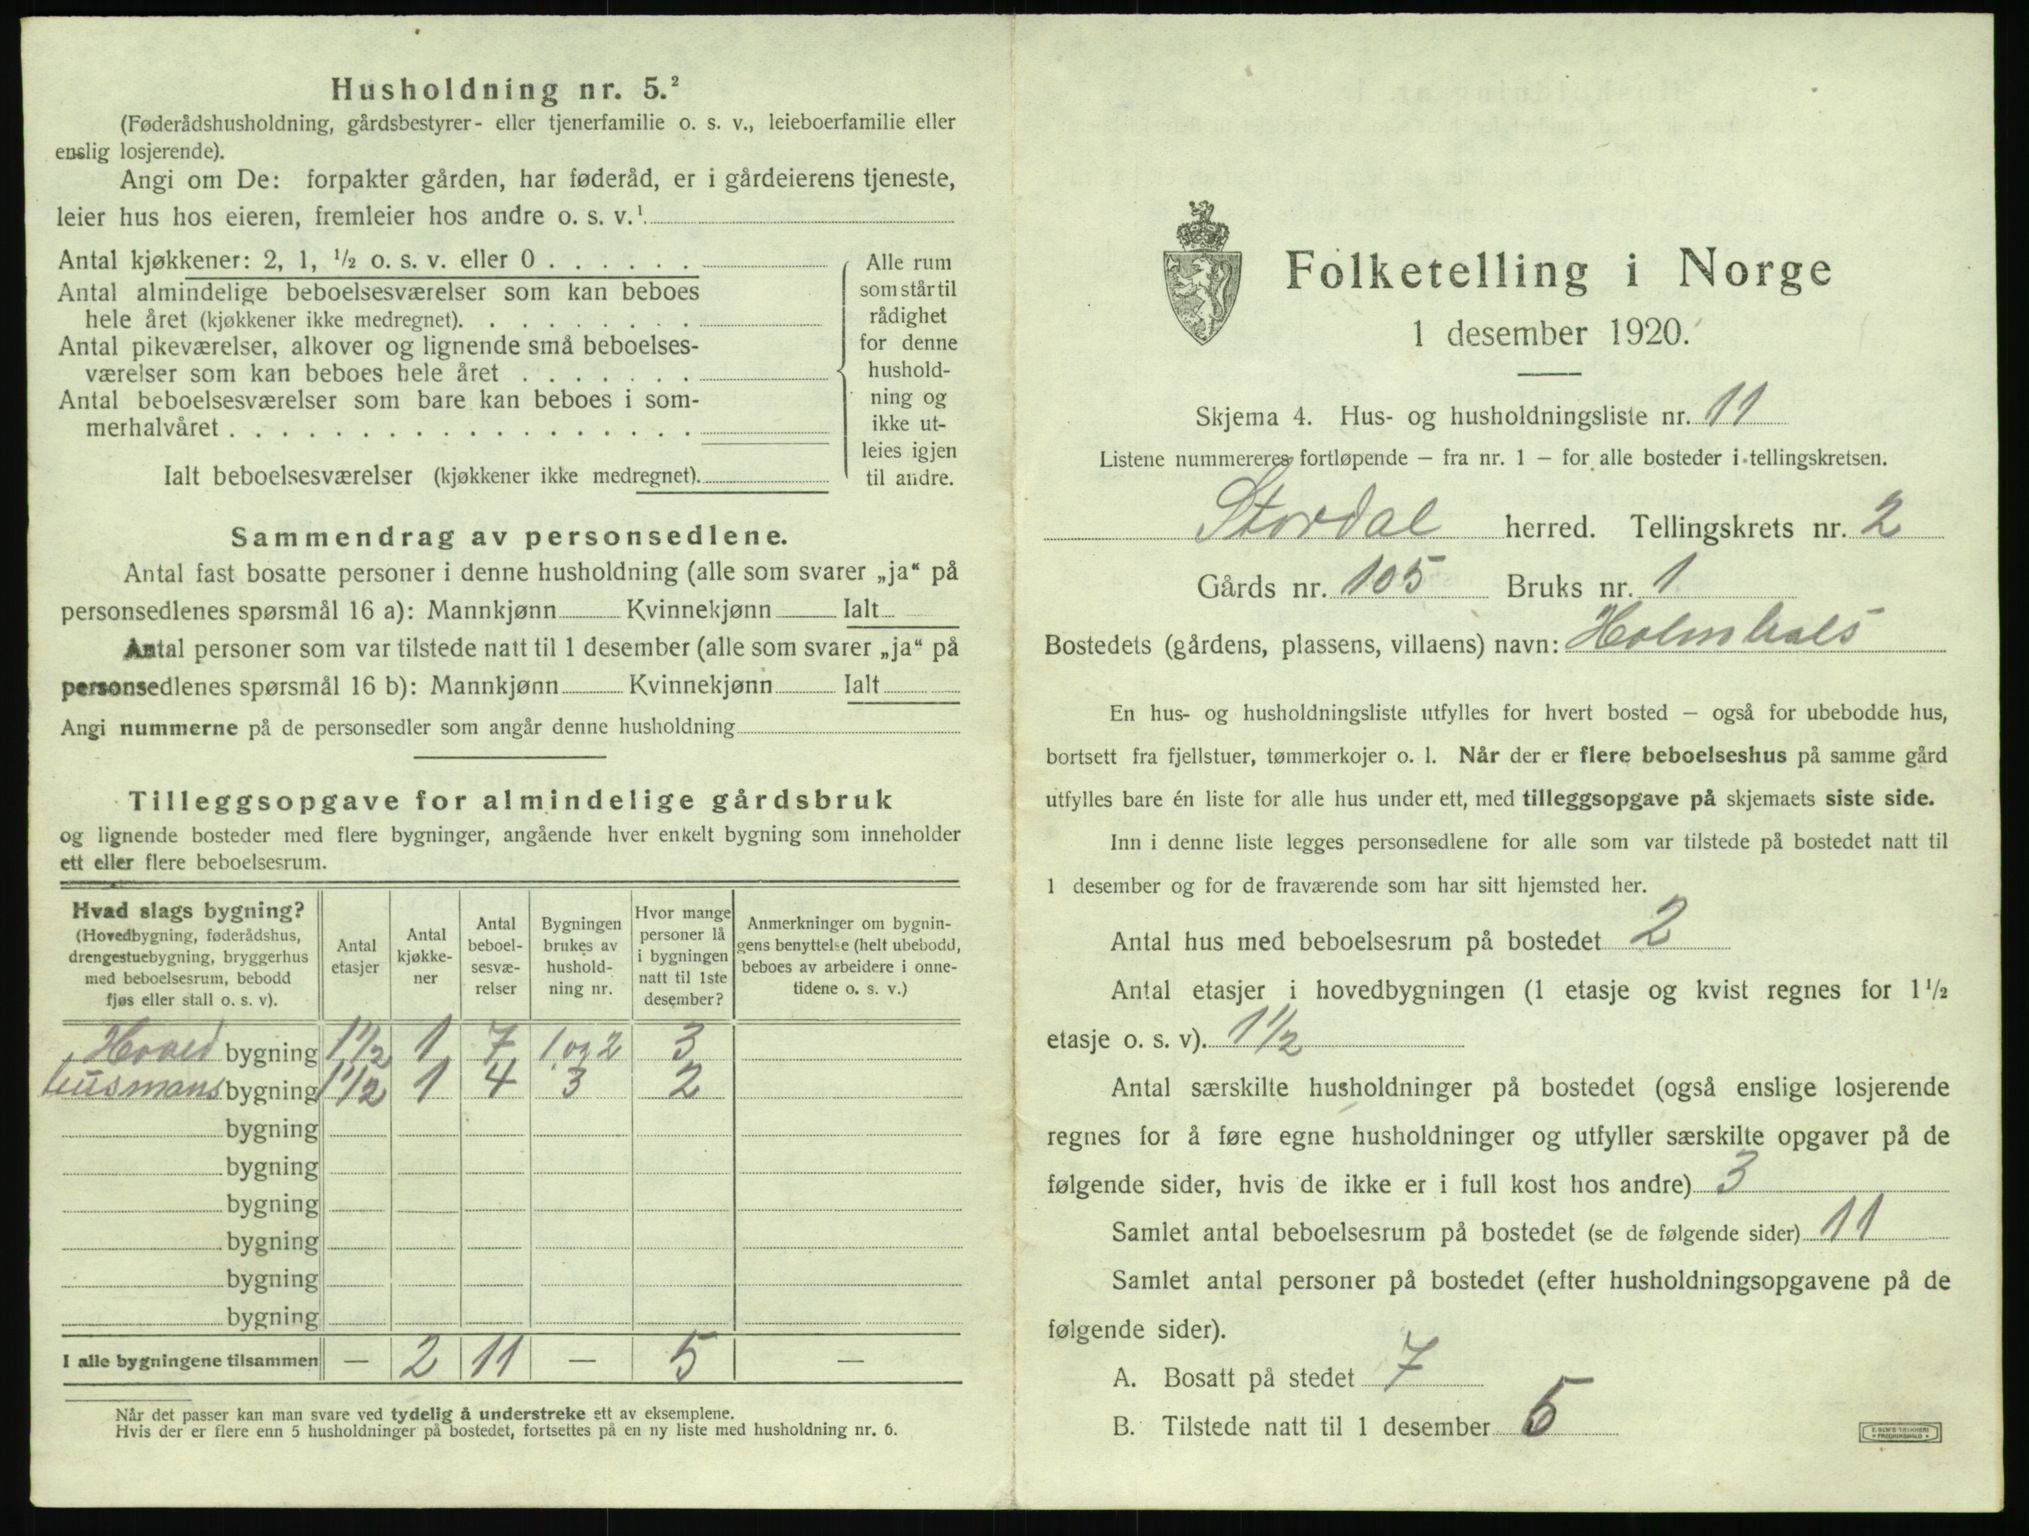 Husholdning nr. 5.²
(Føderådshusholdning, gårdsbestyrer- eller tjenerfamilie o. s. v., leieboerfamilie eller
enslig losjerende).
Angi om De: forpakter gården, har føderåd, er i gårdeierens tjeneste,
leier hus hos eieren, fremleier hos andre o. s. v.¹
Antal kjøkkener: 2, 1, ½ o. s. v. eller 0 . . . . . .
Antal almindelige beboelsesværelser som kan beboes
hele året (kjøkkener ikke medregnet). . . . . . . . .
Antal pikeværelser, alkover og lignende små beboelses-
værelser som kan beboes hele året . . . . . . .
Antal beboelsesværelser som bare kan beboes i som-
merhalvåret . . . . . . . . . . . . . . . . . .
Ialt beboelsesværelser (kjøkkener ikke medregnet).
Alle rum
som står til
rådighet
for denne
hushold-
ning og
ikke ut-
leies igjen
til andre.
Sammendrag av personsedlene.
Antal fast bosatte personer i denne husholdning (alle som svarer „ja“ på
personsedlenes spørsmål 16 a): Mannkjønn Kvinnekjønn Ialt
Antal personer som var tilstede natt til 1 desember (alle som svarer „ja“ på
personsedlenes spørsmål 16 b): Mannkjønn Kvinnekjønn Ialt
Angi nummerne på de personsedler som angår denne husholdning
Tilleggsopgave for almindelige gårdsbruk
og lignende bosteder med flere bygninger, angående hver enkelt bygning som inneholder
ett eller flere beboelsesrum.
Hvad slags bygning?
(Hovedbygning, føderådshus,
drengestuebygning, bryggerhus
med beboelsesrum, bebodd
fjøs eller stall o. s. v).
Antal
etasjer
Antal
kjøkke-
ner
Antal
beboel-
sesvæ-
relser
Bygningen
brukes av
hushold-
ning nr.
Hvor mange
personer lå
i bygningen
natt til 1ste
desember?
Anmerkninger om bygnin-
gens benyttelse (helt ubebodd,
beboes av arbeidere i onne-
tidene o. s. v.)
Hoved bygning 1½ 1 7 1 og 2 3
husmans bygning 1½ 1 4 3 2
bygning
bygning
bygning
bygning
bygning
bygning
I alle bygningene tilsammen — 2 11 — 5 —
Når det passer kan man svare ved tydelig å understreke ett av eksemplene.
Hvis der er flere enn 5 husholdninger på bostedet, fortsettes på en ny liste med husholdning nr. 6.
Folketelling i Norge
1 desember 1920.
Skjema 4. Hus- og husholdningsliste nr. 11
Listene nummereres fortløpende — fra nr. 1 — for alle bosteder i tellingskretsen.
Stordal herred. Tellingskrets nr. 2
Gårds nr. 105 Bruks nr. 1
Bostedets (gårdens, plassens, villaens) navn: Holmhals
En hus- og husholdningsliste utfylles for hvert bosted — også for ubebodde hus,
bortsett fra fjellstuer, tømmerkojer o. l. Når der er flere beboelseshus på samme gård
utfylles bare én liste for alle hus under ett, med tilleggsopgave på skjemaets siste side.
Inn i denne liste legges personsedlene for alle som var tilstede på bostedet natt til
1 desember og for de fraværende som har sitt hjemsted her.
Antal hus med beboelsesrum på bostedet 2
Antal etasjer i hovedbygningen (1 etasje og kvist regnes for 1½
etasje o. s. v). 1½
Antal særskilte husholdninger på bostedet (også enslige losjerende
regnes for å føre egne husholdninger og utfyller særskilte opgaver på de
følgende sider, hvis de ikke er i full kost hos andre) 3
Samlet antal beboelsesrum på bostedet (se de følgende sider) 11
Samlet antal personer på bostedet (efter husholdningsopgavene på de
følgende sider).
A. Bosatt på stedet 7
B. Tilstede natt til 1 desember 5